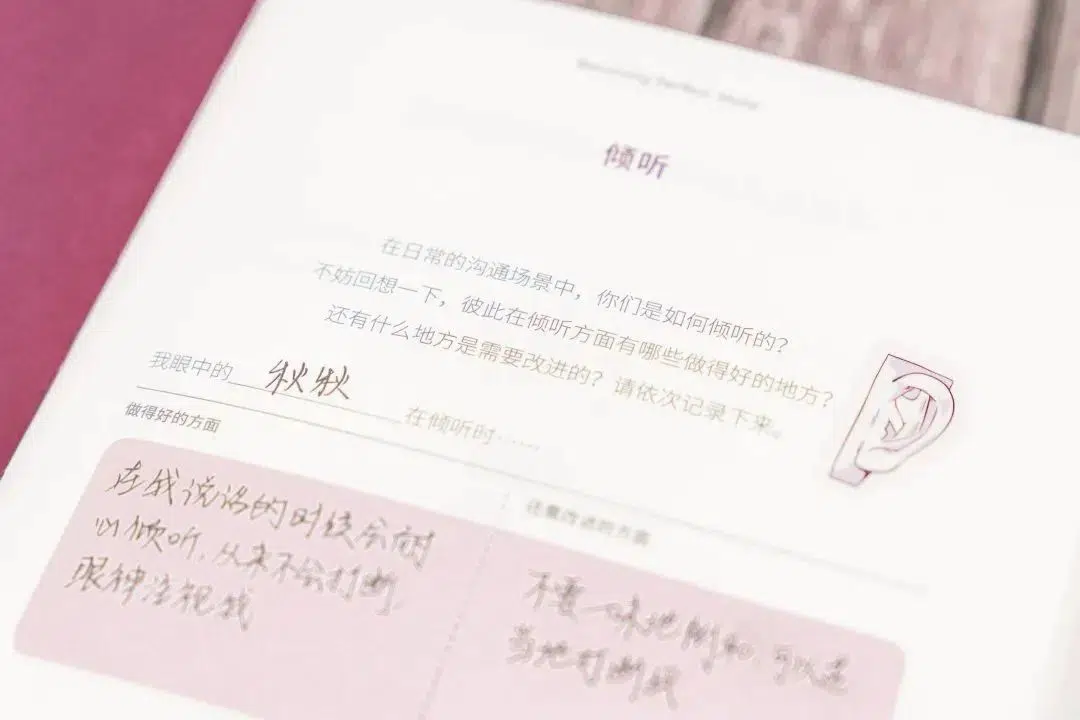 倾听
在日常的沟通场景中，你们是如何倾听的？
不妨回想一下，彼此在倾听方面有哪些做得好的地方？
还有什么地方是需要改进的？请依次记录下来。
我眼中的 秋秋 在倾听时……
做得好的方面
在我说话的时候会耐
心倾听，从来不会打断，
眼神注视我
还需改进的方面
不要一味地附和，可以适
当地打断我